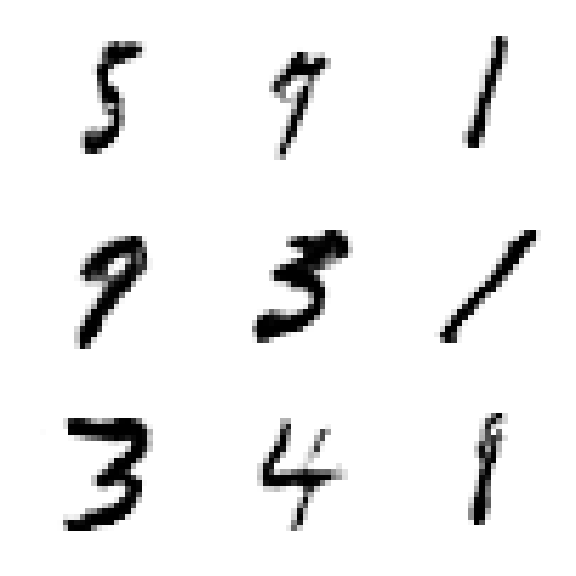 5 9 1
9 3 1
3 4 9